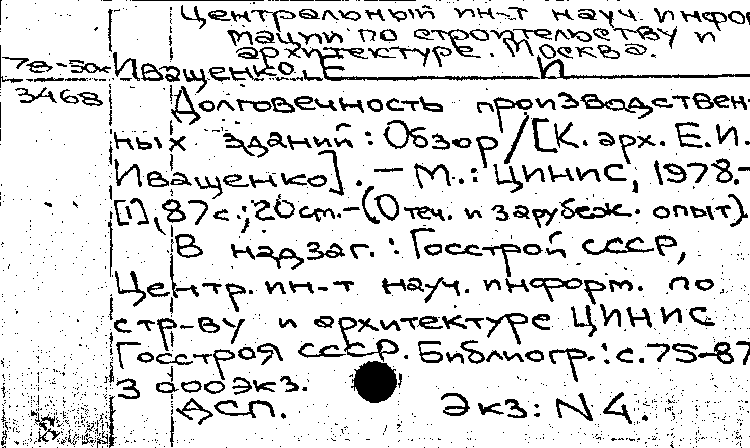 Центральный ин-т науч. инфор
мации по строительству и
архитектуре. Москва.
78-50к Иващенко, Е И
3468 Долговечность производствен-
ных зданий : Обзор / [К. арх. Е.И.
Иващенко]. — М. : ЦИНИС, 1978.-
[1], 87 с. ; 20 ст.-(Отеч. и зарубеж. опыт).
В надзаг. : Госстрой СССР,
Центр. ин-т науч. информ. по
стр-ву и архитектуре ЦИНИС
Госстроя СССР. Библиогр. : с. 75-87
3 000 экз.
АСП. Экз: N 4.